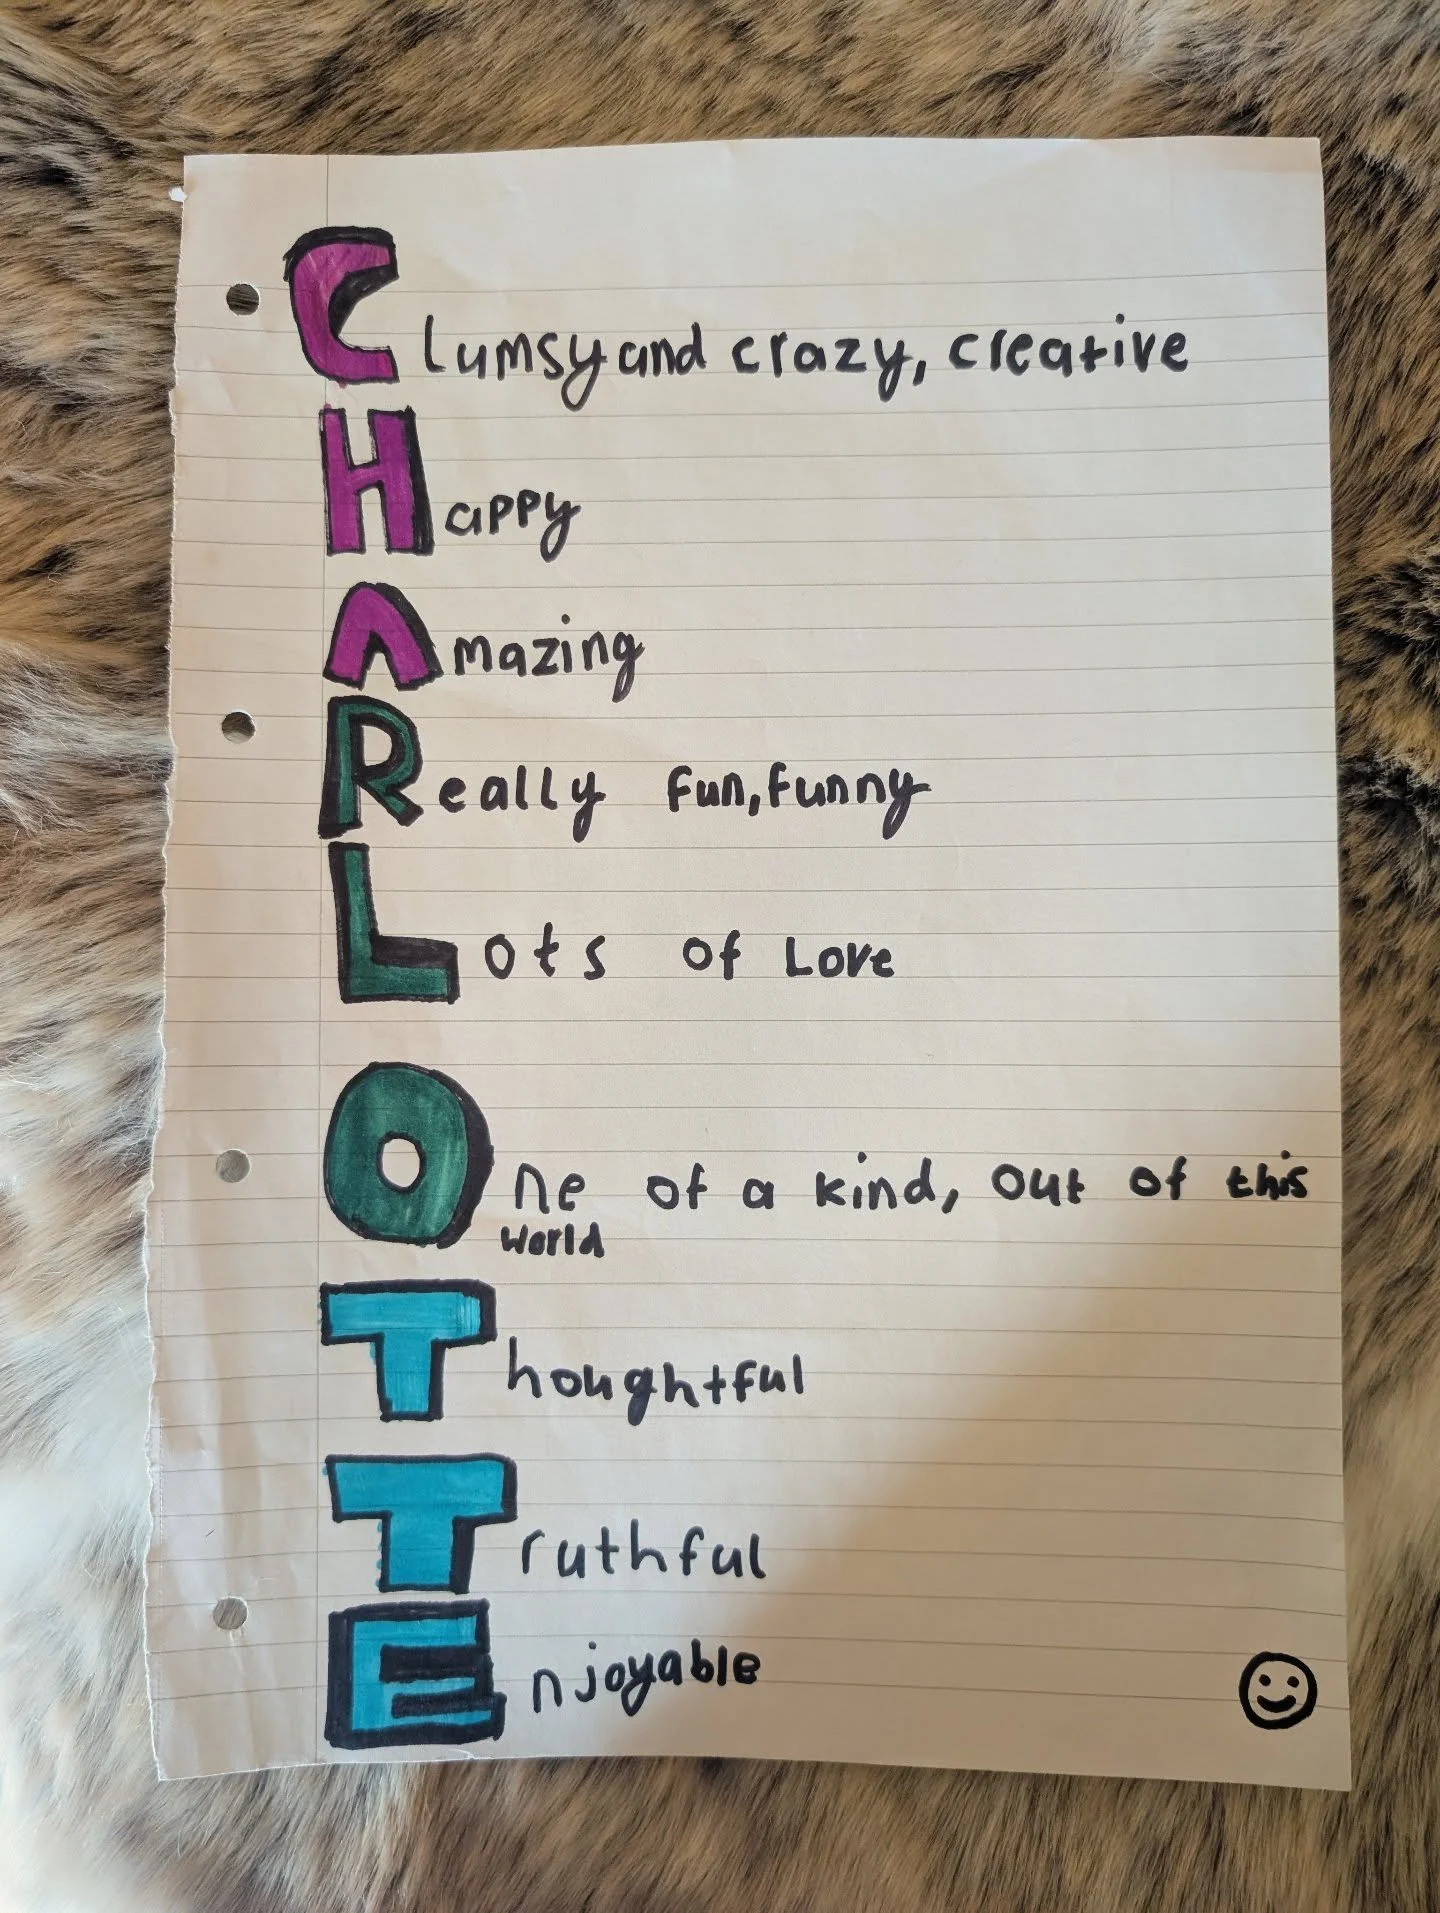 Clumsy and crazy, creative
Happy
Amazing
Really fun, funny
Lots of Love
One of a kind, out of this
world
Thoughtful
Truthful
Enjoyable